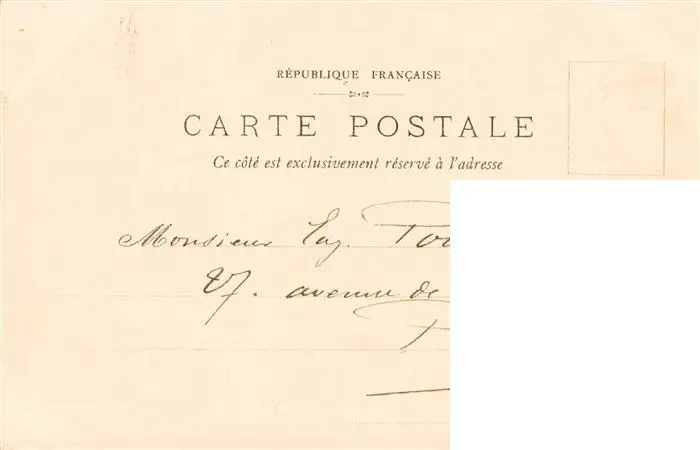 RÉPUBLIQUE FRANÇAISE
CARTE POSTALE
Ce côté est exclusivement réservé à l'adresse
Monsieur Eug.
27. avenue de